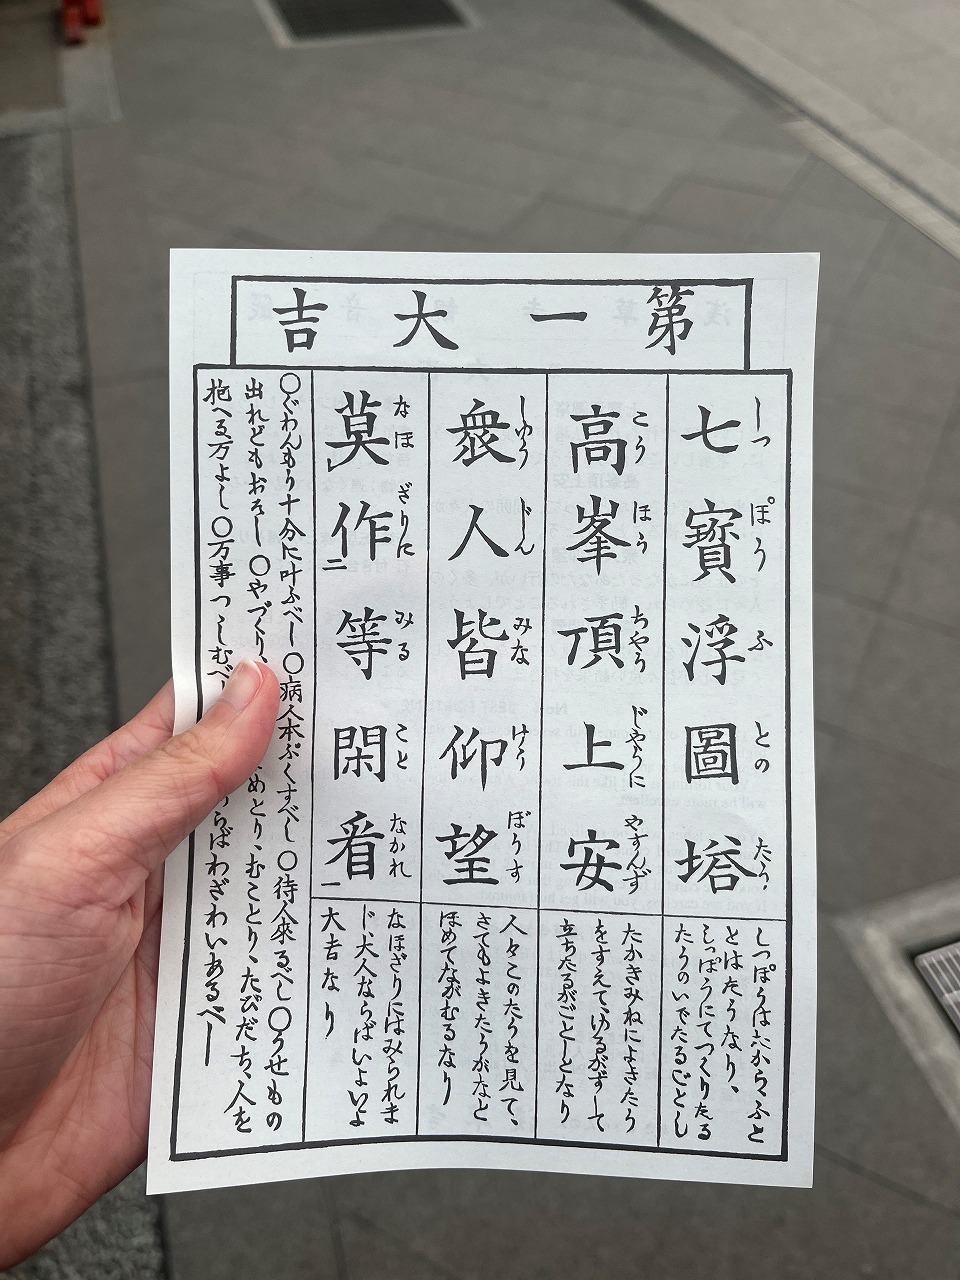 第一大吉
七寶浮圖塔
しつぽうふとのたう
しつぽうはたからふと
とはたうなり、
しつぽうにてつくりたる
たうのいでたるごとし
高峯頂上安
こうほうちやうじやうにやすんず
たかきみねによきたう
をすえてゆるがずして
立ちたるがごとしとなり
衆人皆仰望
しゆうじんみなけうぼうす
人々このたうを見て、
さてもよきたうかなと
ほめてながむるなり
莫作等閑看
なほざりにみることなかれ
なほざりにはみられま
じ、大人ならばいよいよ
大吉なり
〇ぐわんもう十分に叶ふべし〇病人本ぶくすべし〇待人來るべし〇うせもの
出れどもおそし〇やづくり、めとり、むことり、たびだち、人を
抱へる万よし〇万事つゝしむべらばわざわいあるべし